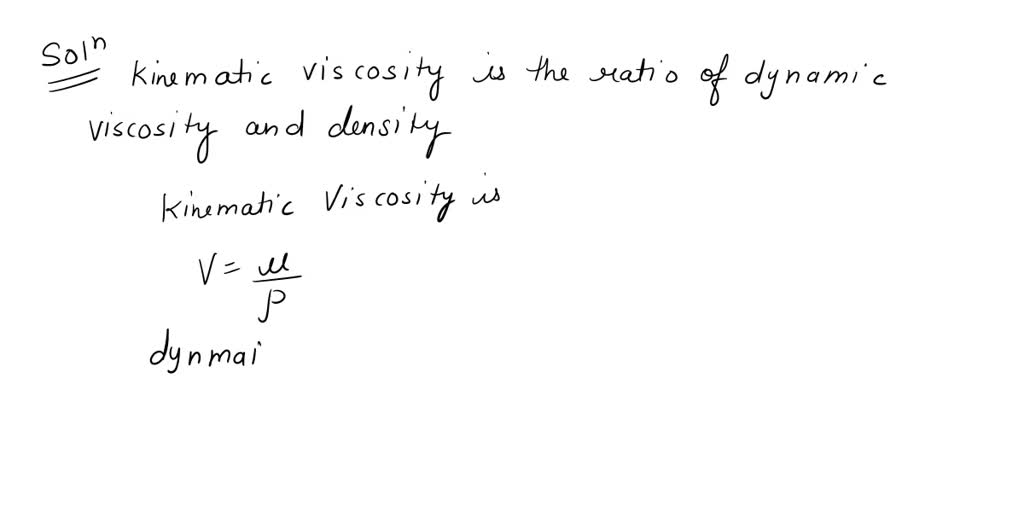 Solⁿ kinematic viscosity is the ratio of dynamic
viscosity and density
kinematic Viscosity is
V = μ/ρ
dynmai